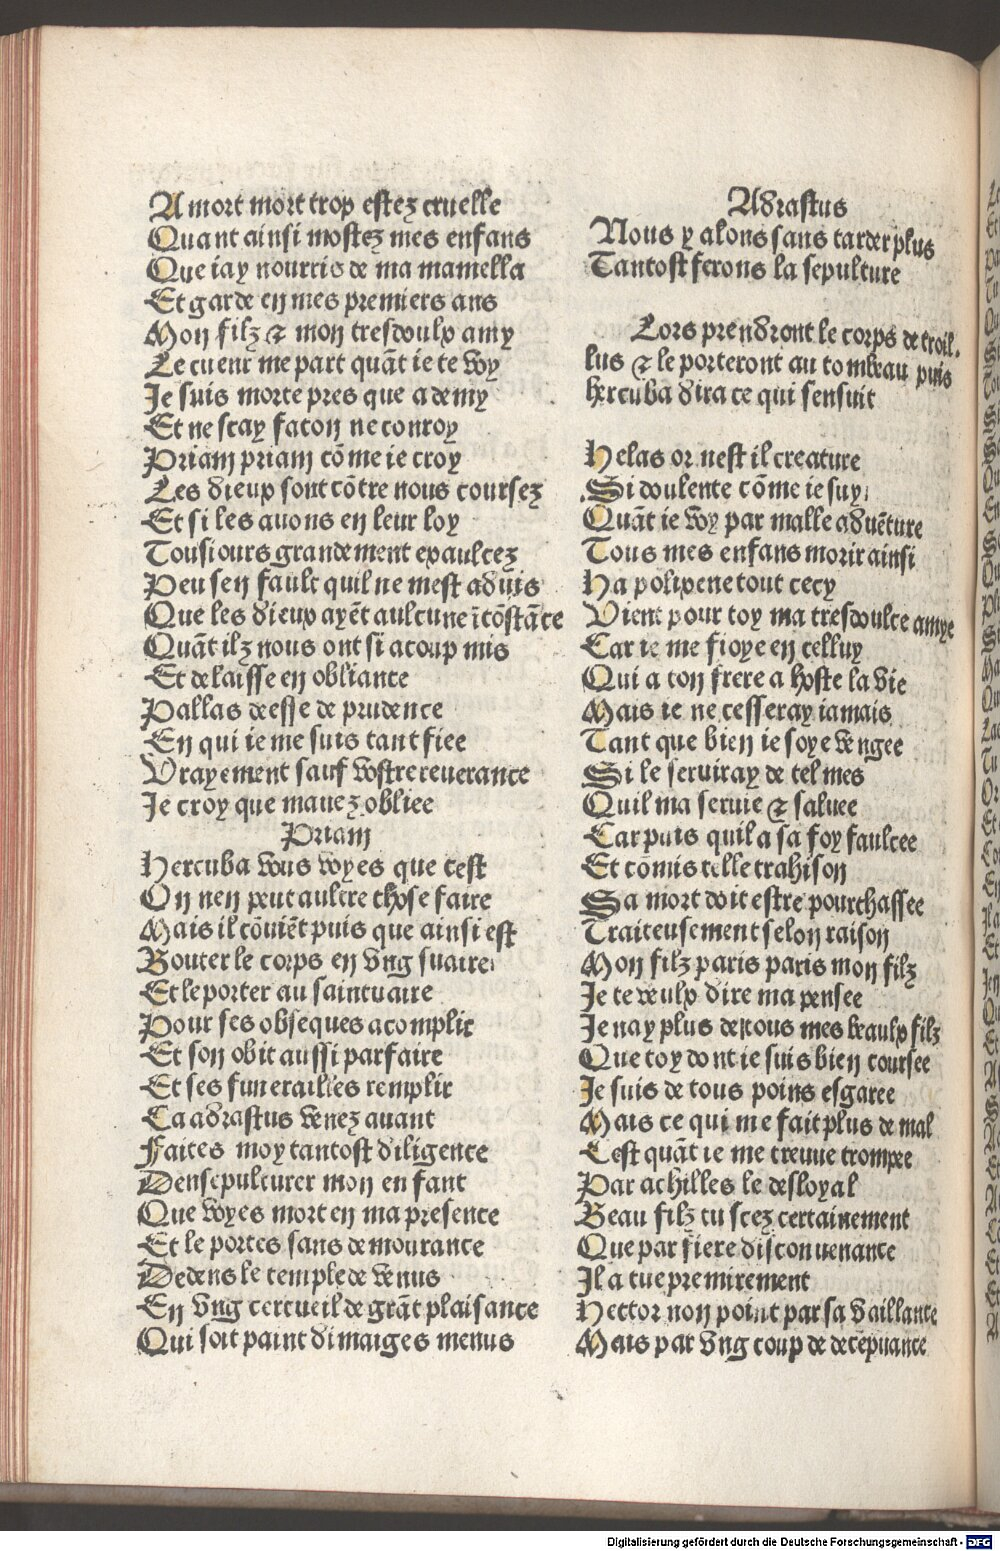 A mort mort trop estez cruelle
Quant ainsi mostez mes enfans
Que iay nourris de ma mamella
Et garde en mes premiers ans
Mon filz & mon tresdoulx amy
Le cueur me part quāt ie te voy
Je suis morte pres que a demy
Et ne scay facon ne conroy
Priam priam cōme ie croy
Les dieux sont cōtre nous coursez
Et si les auons en leur loy
Tousiours grandement exaulcez
Peu sen fault quil ne mest aduis
Que les dieux ayēt aulcune īcōstāce
Quāt ilz nous ont si acoup mis
Et delaisse en obliance
Pallas deesse de prudence
En qui ie me suis tant fiee
Vrayement sauf vostre reuerance
Je croy que mauez obliee
Priam
Hercuba vous voyes que cest
On nen peut aultre chose faire
Mais il cōuiēt puis que ainsi est
Bouter le corps en vng suaire
Et le porter au saintuaire
Pour ses obseques acomplir
Et son obit aussi parfaire
Et ses funerailles remplir
Ca adrastus venez auant
Faites moy tantost diligence
Densepulturer mon enfant
Que voyes mort en ma presence
Et le portes sans demourance
Dedens le temple de venus
En vng cercueil de grāt plaisance
Qui soit paint dimaiges menus
Adrastus
Nous y alons sans tarder plus
Tantost ferons la sepulture
Lors prendront le corps de troil-
lus & le porteront au tombeau puis
hercuba dira ce qui sensuit
Helas or nest il creature
Si doulente cōme ie suy
Quāt ie voy par malle aduēture
Tous mes enfans morir ainsi
Ha polixene tout cecy
Vient pour toy ma tresdoulce amye
Car ie me fioye en celluy
Qui a ton frere a hoste la vie
Mais ie ne cesseray iamais
Tant que bien ie soye vengee
Si le seruiray de tel mes
Quil ma seruie & saluee
Car puis quil a sa foy faulcee
Et cōmis telle trahison
Sa mort doit estre pourchassee
Traiteusement selon raison
Mon filz paris paris mon filz
Je te veulx dire ma pensee
Je nay plus de tous mes beaulx filz
Que toy dont ie suis bien coursee
Je suis de tous poins esgaree
Mais ce qui me fait plus de mal
Cest quāt ie me treuue trompee
Par achilles le desloyal
Beau filz tu scez certainement
Que par fiere disconuenance
Il a tue premirement
Hector non point par sa vaillante
Mais par vng coup de decepuance
Digitalisierung gefördert durch die Deutsche Forschungsgemeinschaft - DFG